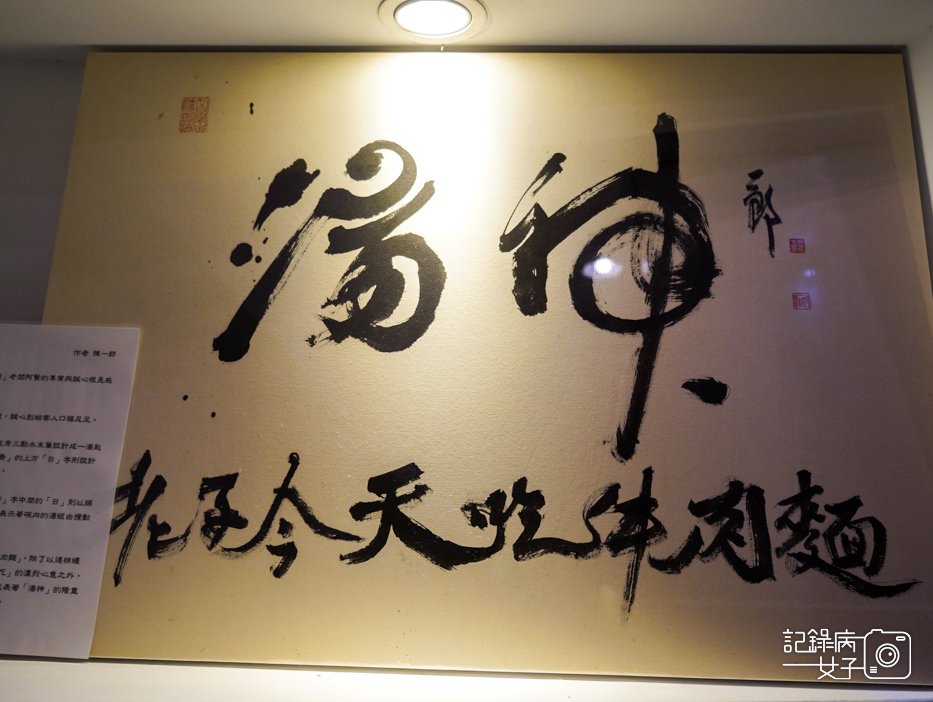 湯神
一郎
老子今天吃牛肉麵
作者 陳一郎
」老闆阿贊的專業與誠心很是感
，誠心到給客人口福足足。
左旁三點水末筆設計成一湯匙
」的上方「日」字則設計
」字中間的「日」則以順
表示著碗內的湯經由攪動
肉麵」，除了以這樣繾
吃」的濃烈心意之外，
代表著「湯神」的隆重
記錄病
女子